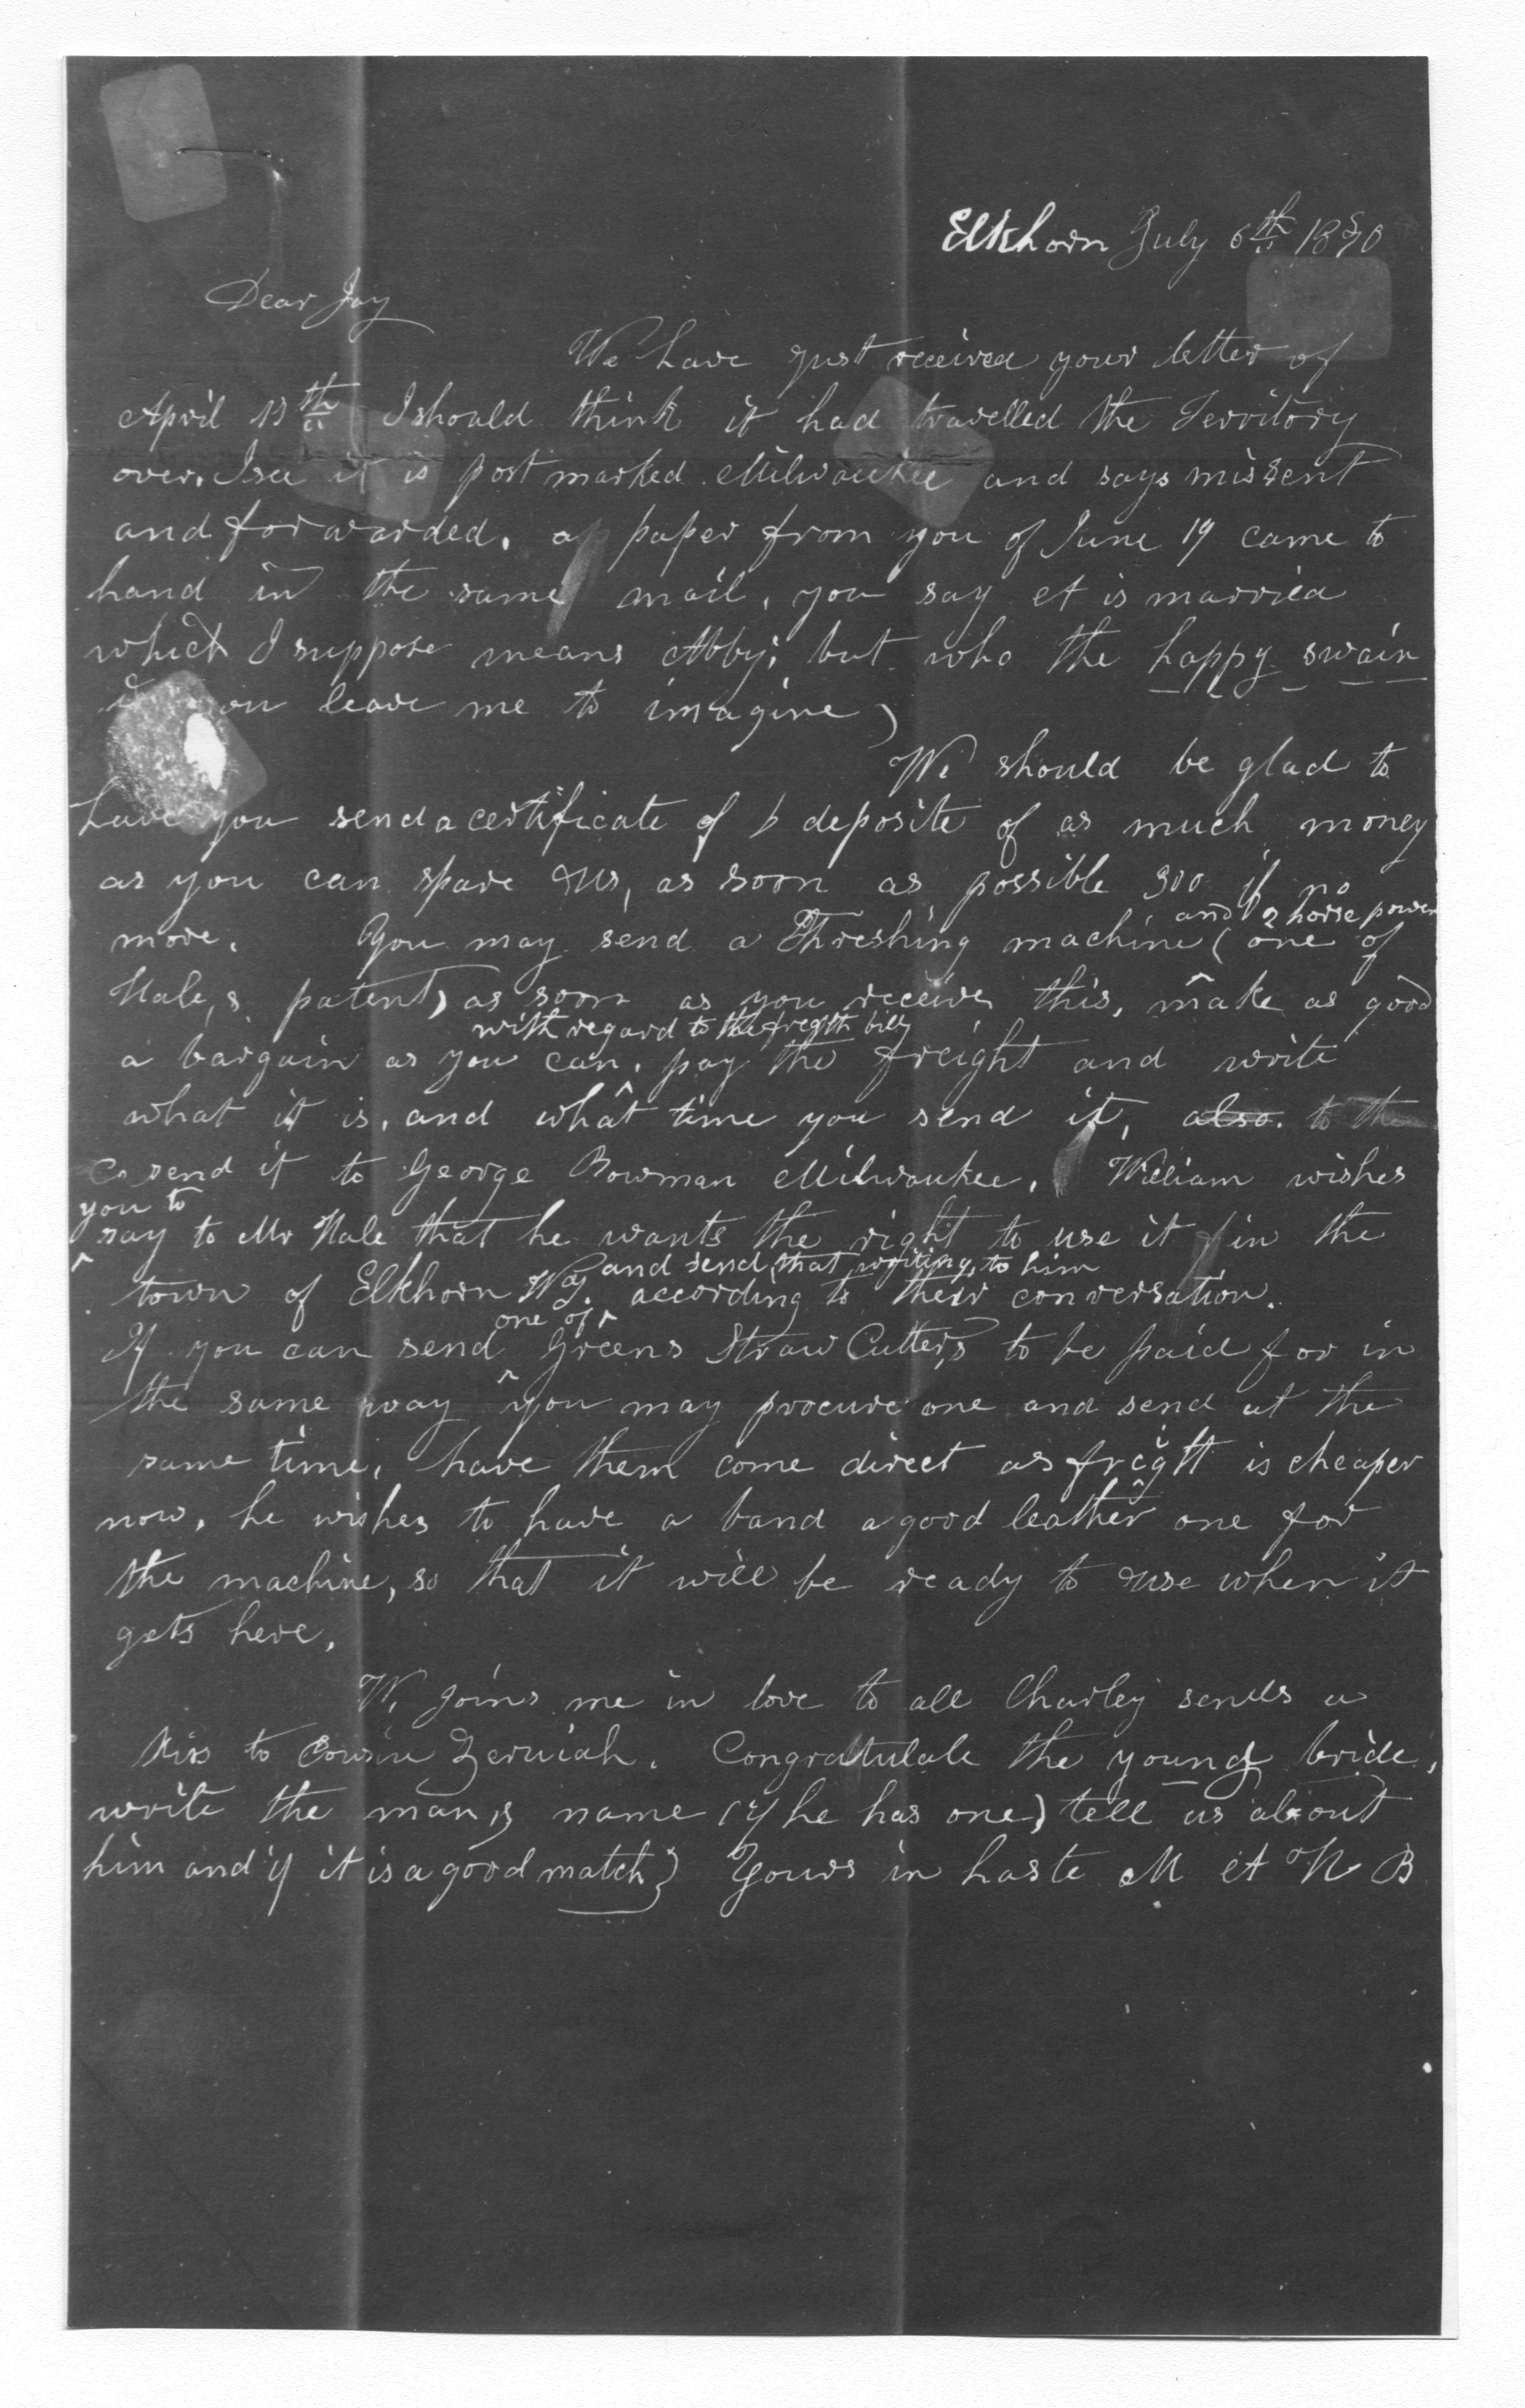 Elkhorn July 6th
Dear Jay
We have just received your letter of
April 13th I should think it had travelled the Territory
over. I see it is postmarked Milwaukee and says missent
and forwarded. a paper from you of June 19 came to
hand in the same mail, you say A is married
which I suppose means Abby; but who the happy swain
you leave me to imagine)
We should be glad to
have you send a certificate of deposite of as much money
as you can spare us, as soon as possible 300 if no
and 2 horse power
more. You may send a Threshing machine (one of
Hale,s patent) as soon as you receive this, make as good
with regard to the freigth bill
a bargain as you can. pay the freight and write
what it is, and what time you send it, also. to the
send it to George Bowman Milwaukee. William wishes
you to
say to Mr Hale that he wants the right to use it in the
and send that writing to him
town of Elkhorn W.T. according to their conversation.
one of
If you can send Greens Straw Cutter,s to be paid for in
the same way you may procure one and send at the
same time, have them come direct as freigtt is cheaper
now, he wishes to have a band a good leather one for
the machine, so that it will be ready to use when it
gets here.
W. joins me in love to all Charley sends a
kiss to Cousin Zerniah. Congratulate the young bride,
write the man,s name (if he has one) tell us about
him and if it is a good match} Yours in haste M A W B